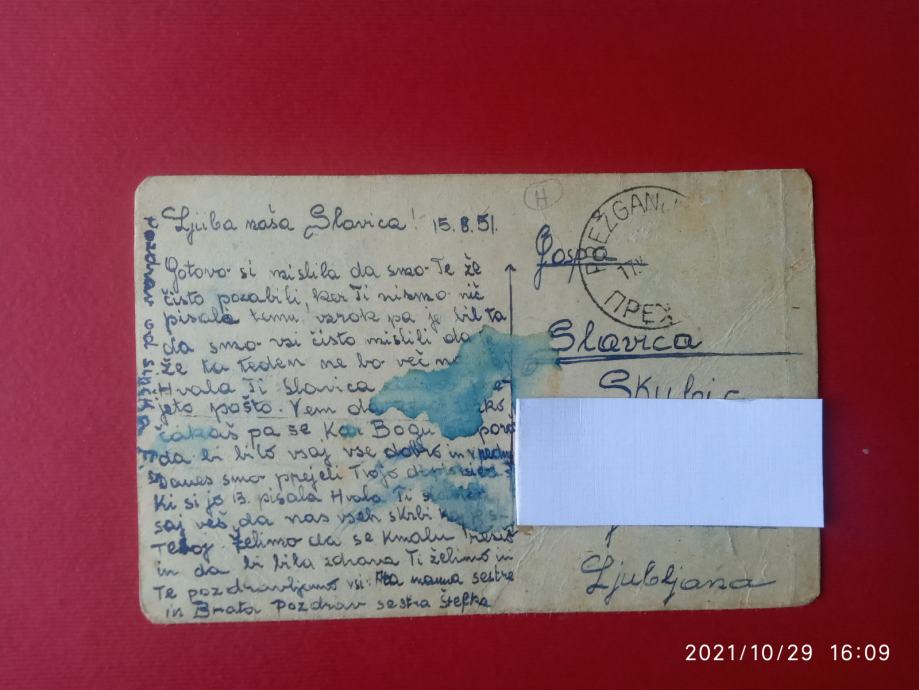 Ljuba naša Slavica! 15.8.51.
Gotovo si mislila da smo Te že
čisto pozabili, ker Ti nismo nič
pisala temu vzrok pa je bil ta
da smo vsi čisto mislili da
že ta teden ne bo več
Hvala Ti Slavica
pošto. Vem da
čakaš pa se Kar Bogu
da bi bilo vsaj vse dobro in
Danes smo prejeli Tvojo
Ki si jo 13. pisala Hvala Ti
saj veš da nas vseh skrbi
Teboj. Želimo da se kmalu
in da bi bila zdrava Ti želimo in
Te pozdravljamo vsi. Ata mama sestre
in Brata Pozdrav sestra Štefka
Pozdrav od
H
PREŽGANJ
17.
ПРЕЖ
Gospa
Slavica
Skubic
Ljubljana
2021/10/29 16:09